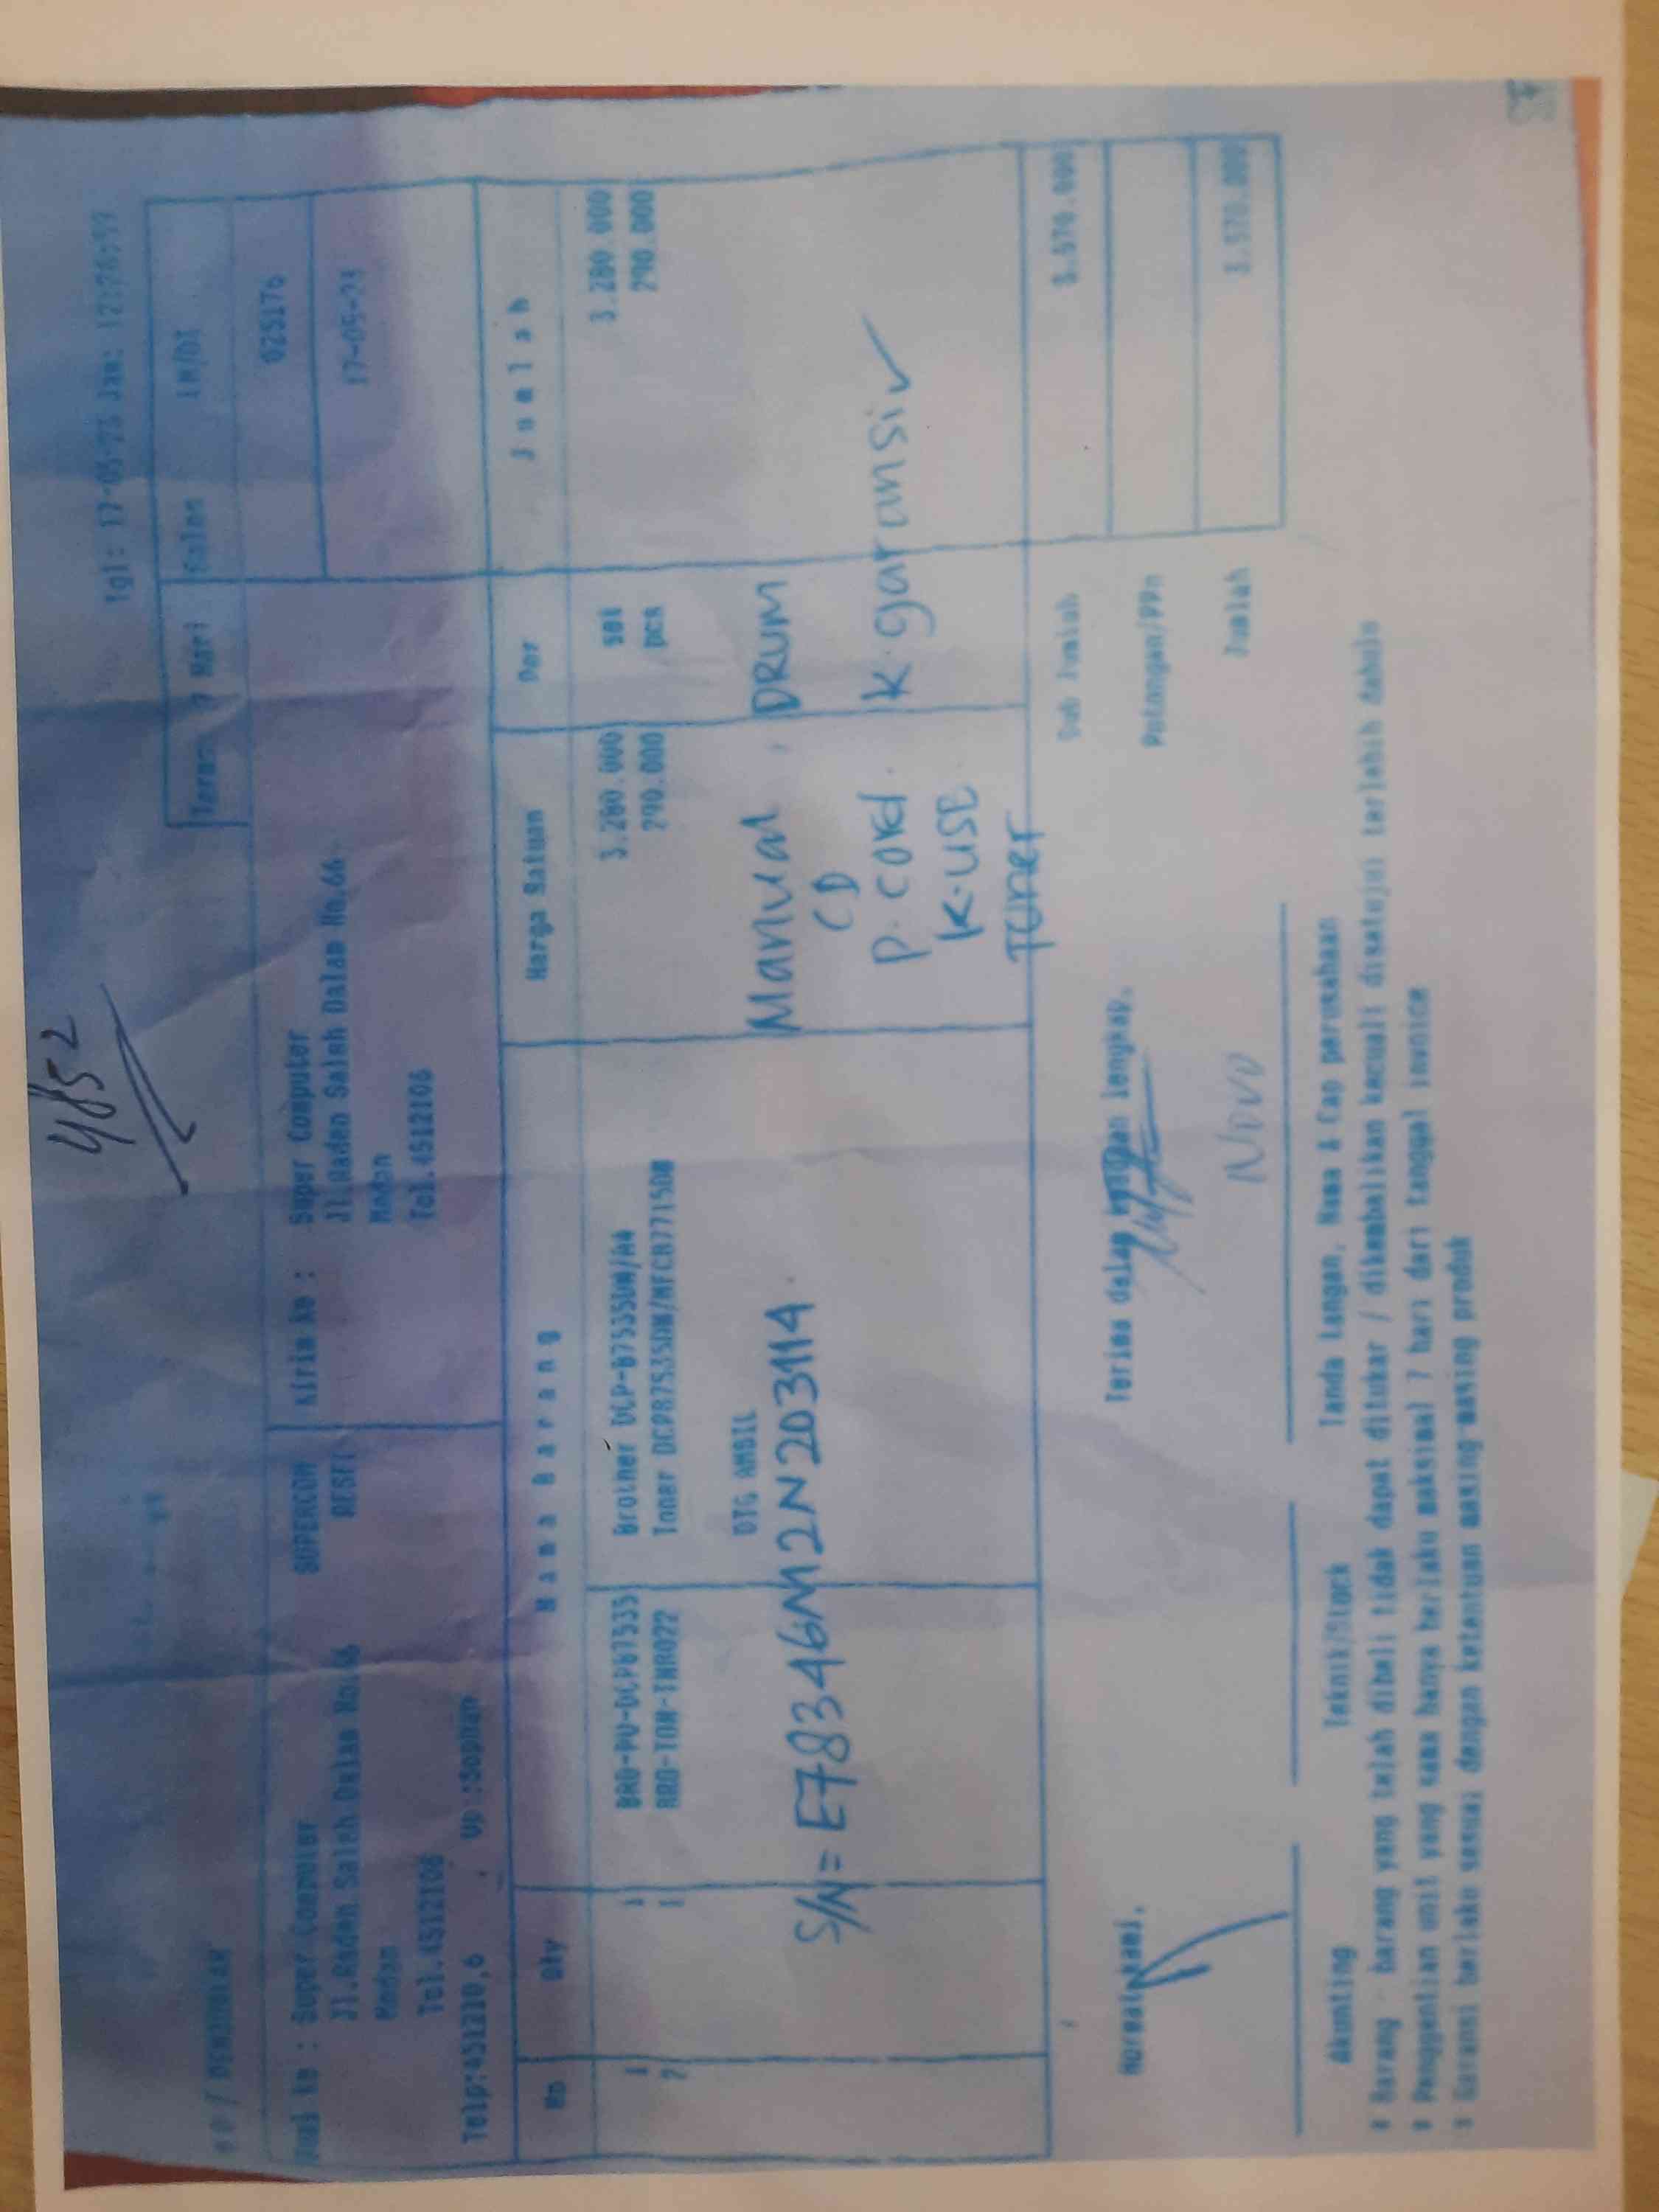 4852
Tgl: 17-05-23 Jam:
Term: 7 Hari Salon IM/DI
Jual ke : Super Computer SUPERCOM Kirim ke : Super Computer 025176
Jl.Raden Saleh Dalam No.66 RESFI Jl.Raden Saleh Dalam No.66 17-05-23
Medan Medan
Tel.4512106 Tel.4512106
Telp:4512110,6 Up :Sophan
No Qty Nama Barang Harga Satuan Per Jumlah
1 1 BRO-PU-DCPB7535 Brother DCP-B7535DW/A4 3.280.000 set 3.280.000
2 1 BRO-TON-TNR022 Toner DCPB7535DW/MFCB7715DW 290.000 pcs 290.000
DTG AMBIL Manual , DRUM
S/N = E78346M2N203114 CD
P. cord. K. garansi ✓
K-USB
Toner
Sub Jumlah 3.570.000
Hormat kami, Terima dalam lengkap, Potongan/PPn
Novu Jumlah 3.570.000
Akunting Teknik/Stock Tanda tangan, Nama & Cap perusahaan
* Barang - barang yang telah dibeli tidak dapat ditukar / dikembalikan kecuali disetujui terlebih dahulu
* Penggantian unit yang sama hanya berlaku maksimal 7 hari dari tanggal invoice
* Garansi berlaku sesuai dengan ketentuan masing-masing produk